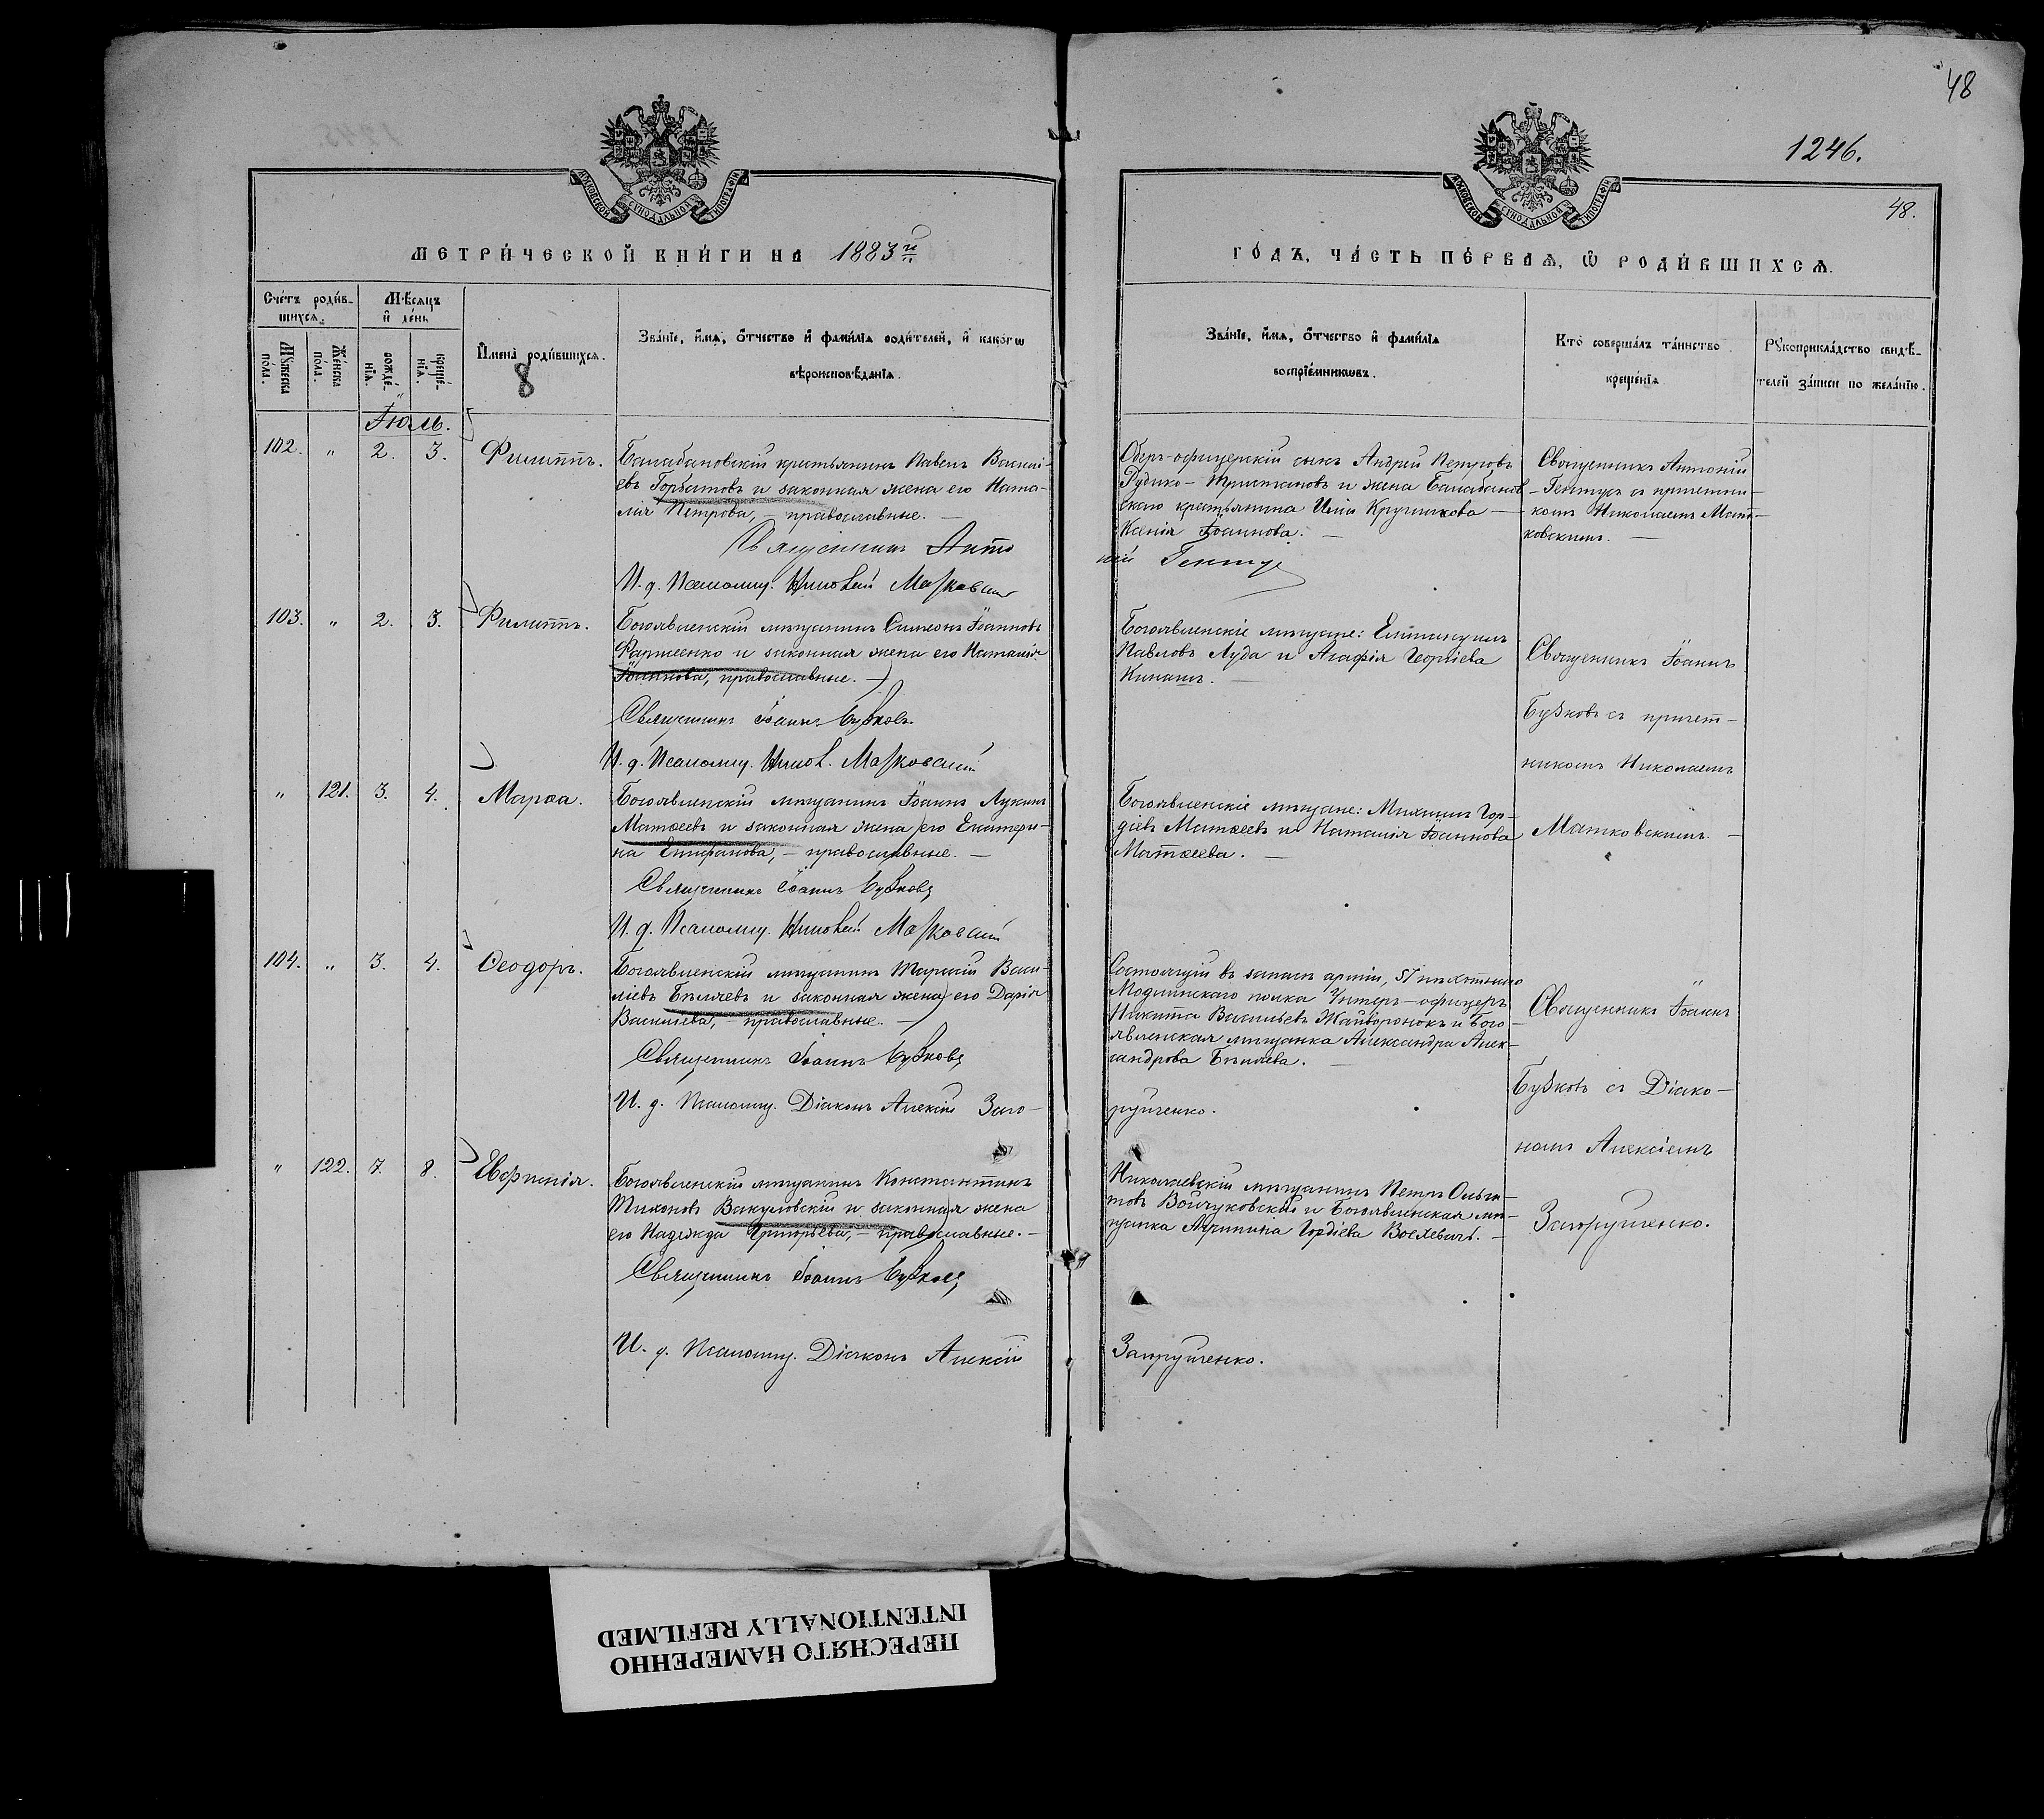 48
1246.
48.
МОСКОВСКОЙ СѴНОДАЛЬНОЙ ТИПОГРАФІИ
МОСКОВСКОЙ СѴНОДАЛЬНОЙ ТИПОГРАФІИ
МЕТРИ́ЧЕСКОЙ КНИ́ГИ НА 1883й
ГО́ДЪ, ЧА́СТЬ ПЕ́РВАѦ, Ѽ РОДИ́ВШИХСѦ.
Сче́тъ роди́в-
шихсѧ.
Мѣ́сяцъ
и҆ де́нь
Мꙋ́жеска
по́ла.
Же́нска
по́ла.
рожде́-
нїѧ.
креще́-
нїѧ.
И҆мена̀ роди́вшихсѧ.
8
Зва́нїе, и҆́мѧ, ѻ҆́тчество и҆ фами́лїѧ роди́телей, и҆ како́гѡ
вѣроисповѣ́данїѧ.
Зва́нїе, и҆́мѧ, ѻ҆́тчество и҆ фами́лїѧ
воспрїе́мникѡвъ.
Кто̀ соверша́лъ та́инство
креще́нїѧ
Рꙋкоприкла́дство свидѣ́-
телей за́писи по жела́нїю.
Іюль.
102. " 2. 3. Филиппъ.
Балабановскій крестьянинъ Павелъ Василі-
евъ Горбатовъ и законная жена его Ната-
лія Петрова, – православные. –
Священникъ Анто
ній Гентуг
И. д. Псаломщ. Николай Матковскій
Оберъ-офицерскій сынъ Андрей Петровъ
Рудько-Тристановъ и жена Балабанов
скаго крестьянина Иліи Кручинкова –
Ксенія Іоаннова. –
Священникъ Антоній
– Гентугъ съ причетни-
комъ Николаемъ Мат-
ковскимъ. –
103. " 2. 3. Филиппъ.
Богоявленскій мѣщанинъ Симеонъ Іоанновъ
Фартеенко и законная жена его Наталія
Іоаннова, православные. –
Священникъ Іоаннъ Бузковъ
И. д. Псаломщ. Никол. Матковскій
Богоявленскіе мѣщане:
Павловъ Луда и Агафія Георгіева
Кинашъ. –
Священникъ Іоаннъ
Бузковъ съ причет-
никомъ Николаемъ
Матковскимъ. –
" 121. 3. 4. Марѳа.
Богоявленскій мѣщанинъ Іоаннъ Лукинъ
Матѳеевъ и законная жена его Екатери-
на Епифанова, – православные. –
Священникъ Іоаннъ Бузковъ
И. д. Псаломщ. Николай Матковскій
Богоявленскіе мѣщане: Михаилъ Гор-
діевъ Матѳеевъ и Наталія Іоаннова
Матѳеева. –
104. " 3. 4. Ѳеодоръ.
Богоявленскій мѣщанинъ Тарасій Васи-
ліевъ Бѣляевъ и законная жена его Дарія
Василіева, – православные. –
Священникъ Іоаннъ Бузковъ
И. д. Псаломщ. Діаконъ Алексій Запо-
рупченко.
Состоящій въ запасѣ арміи, 57 пѣхотнаго
Модлинскаго полка Унтеръ-офицеръ
Никита Васильевъ Жайворонокъ и Бого-
явленская мѣщанка Александра Алек-
сандрова Бѣляева. –
Священникъ Іоаннъ
Бузковъ съ Діако-
номъ Алексіемъ
" 122. 7. 8. Евфимія.
Богоявленскій мѣщанинъ Константинъ
Тихоновъ Вакуловскій и законная жена
его Надежда Григорьева, – православные. –
Священникъ Іоаннъ Бузковъ
И. д. Псаломщ. Діаконъ Алексій
Николаевскій мѣщанинъ Петръ
Войчуковскій и Богоявленская мѣ-
щанка Агрипина Гордіева Воехевичъ. –
ПЕРЕСНЯТО НАМЕРЕННО
INTENTIONALLY REFILMED